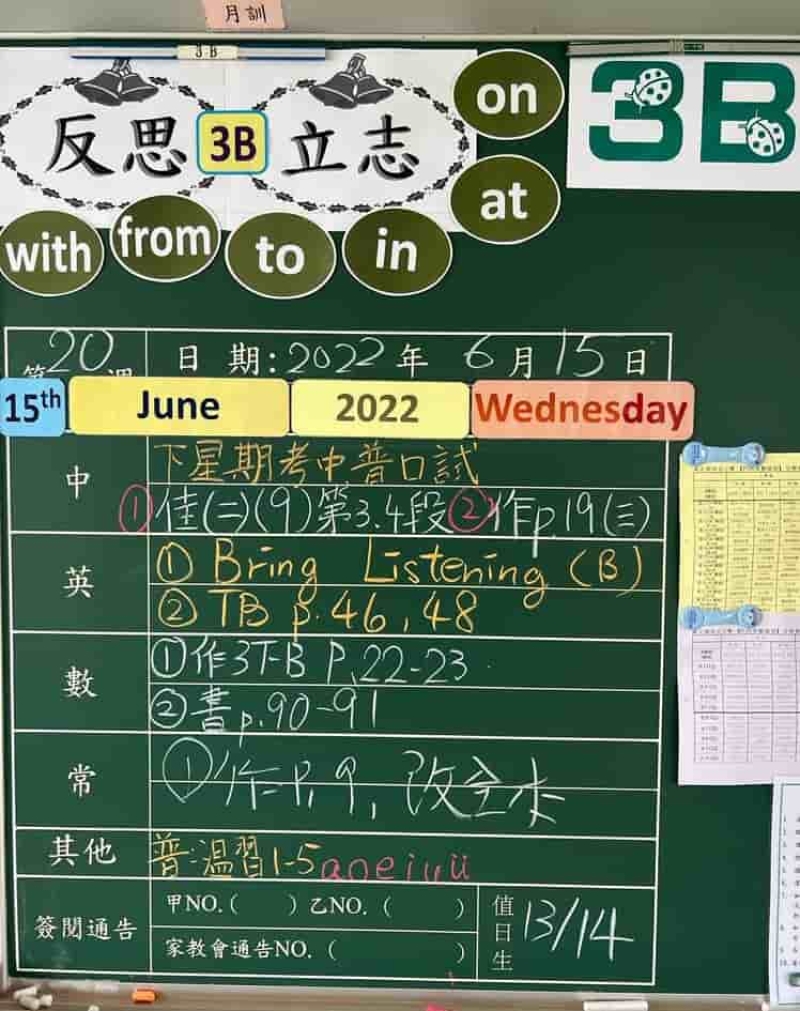 月訓
3B
反思 3B 立志
on
3B
at
with from to in
第20週 日期:2022年 6月15日
15th June 2022 Wednesday
中 下星期考中普口試
①佳(二)(9)第3.4段②作p.19(三)
英 ① Bring Listening (B)
② TB p.46,48
數 ①作3下B P.22-23
②書p.90-91
常 ①作P.9, 改全本
其他 普:溫習1-5aoeiuü
簽閱通告 甲NO.( ) 乙NO.( )
家教會通告NO.( )
值日生 13/14